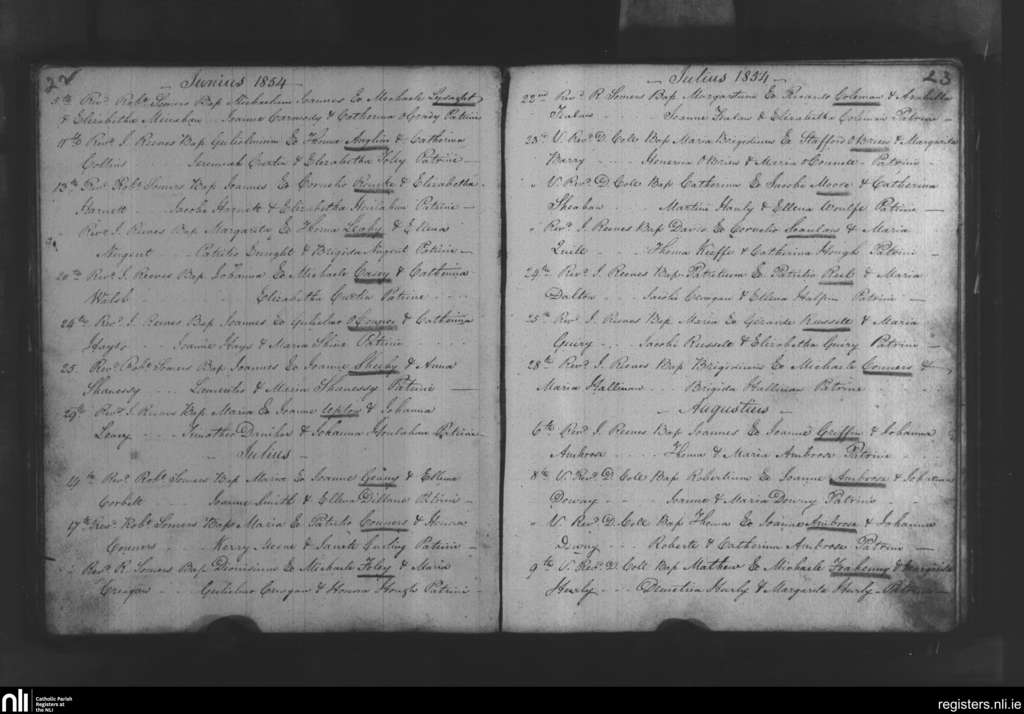 22
Junius 1854
5th Revd Robt Somers Bap Michaelim Joannes Ex Michaele Lysaght
& Elizabetha Minihan Joanne Carmody & Catherina O'Grady Patrini
11th Revd J. Reeves Bap Gulielmum Ex Thoma Anglim & Catherina
Collins Jeremiah & Elizabetha Patrini
13th Revd Robt Somers Bap Joannes Ex Cornelio Rourke & Elizabetha
Harnett Jacobi Harnett & Elizabetha Houlahan Patrini
Revd J. Reeves Bap Margarita Ex Thoma Leahy & Ellena
Nugent Patritio & Brigida Nugent Patrini
20th Revd J. Reeves Bap Johanna Ex Michaele Casey & Catherina
Walsh Elizabetha Patrini
24th Revd J. Reeves Bap Joannes Ex Gulielmo O'Connor & Catherina
Hays Joanne Hays & Maria Shine Patrini
25 Revd Robt Somers Bap Joannes Ex Joanne Sheehy & Anna
Shanessy Laurentio & Maria Shanessy Patrini
29th Revd J. Reeves Bap Maria Ex Joanne & Johanna
Leary Timotheo & Johanna Houlahan Patrini
Julius
14th Revd Robt Somers Bap Maria Ex Joanne & Ellena
Corbett Joanne Smith & Ellena Dillane Patrini
17th Revd Robt Somers Bap Maria Ex Patritio Connors & Honora
Connors Kerry Moone & Janete Patrini
Revd R. Somers Bap Dionisium Ex Michaele Foley & Maria
Creagan Gulielmo Creagan & Honora Hough Patrini
23
Julius 1854
22nd Revd R Somers Bap Margaritam Ex Ricardo Coleman & Arabella
Joanne & Elizabetha Coleman Patrini
23rd V. Revd D. Coll Bap Maria Brigidium Ex Stafford O'Brien & Margarita
Barry Henerico O'Brien & Maria Patrini
" V. Revd D. Coll Bap Catherina Ex Jacobi Moore & Catherina
Sheahan Martini Hanly & Ellena Woulfe Patrini
" Revd J. Reeves Bap Davis Ex Cornelio Scanlan & Maria
Quille Thoma Kieffe & Catherina Hough Patrini
24th Revd J. Reeves Bap Patritium Ex Patritio & Maria
Dalton Jacobi Creagan & Ellena Halpin Patrini
25th Revd J. Reeves Bap Maria Ex Gerardo Russell & Maria
Guiry Jacobi Russell & Elizabetha Guiry Patrini
28th Revd J. Reeves Bap Brigidium Ex Michaele Connors &
Maria Hallinan Brigida Hallinan Patrini
Augustius
6th Revd J. Reeves Bap Joannes Ex Joanne Griffin & Johanna
Ambrose Thoma & Maria Ambrose Patrini
8th V. Revd D. Coll Bap Robertium Ex Joanne Ambrose & Johanna
Downy Joanne & Maria Downy Patrini
" V. Revd D. Coll Bap Thoma Ex Joanne Ambrose & Johanna
Downy Roberti & Catherina Ambrose Patrini
9th V. Revd D. Coll Bap Mathew Ex Michaele & Margarita
Hurly Demetria Hurly & Margarita Hurly Patrini
nli
Catholic Parish
Registers at
the NLI
registers.nli.ie